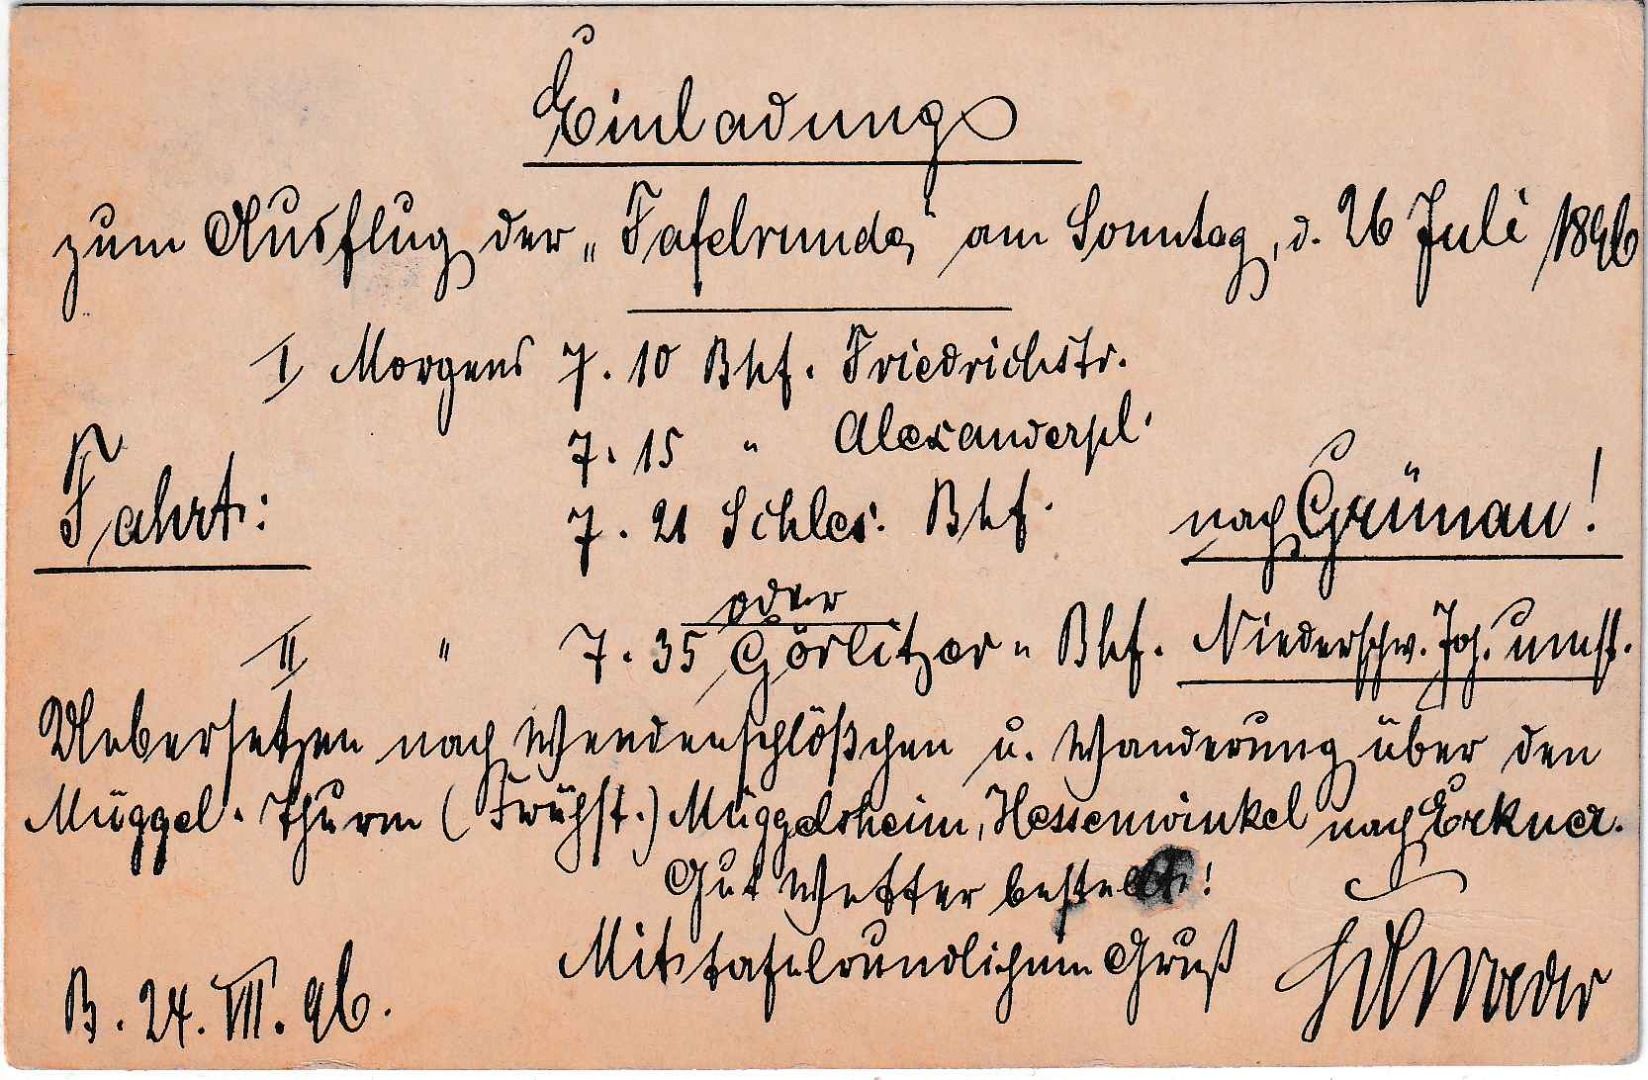 Einladung
zum Ausflug der „Tafelrunde" am Sonntag, d. 26 Juli 1896
I Morgens 7.10 Bhf. Friedrichstr.
7.15 " Alexanderpl.
Fahrt: 7.21 Schles. Bhf. nach Grünau!
oder
II " 7.35 Görlitzer - Bhf. Niederschw. Joh. umst.
Uebersetzen nach Wendenschlößchen u. Wanderung über den
Müggel-Thurm (Frühst.) Müggelsheim, Hessenwinkel nach Erkner.
Gut Wetter bestellt!
Mit tafelrundlichem Gruß
B. 24. VII. 96.